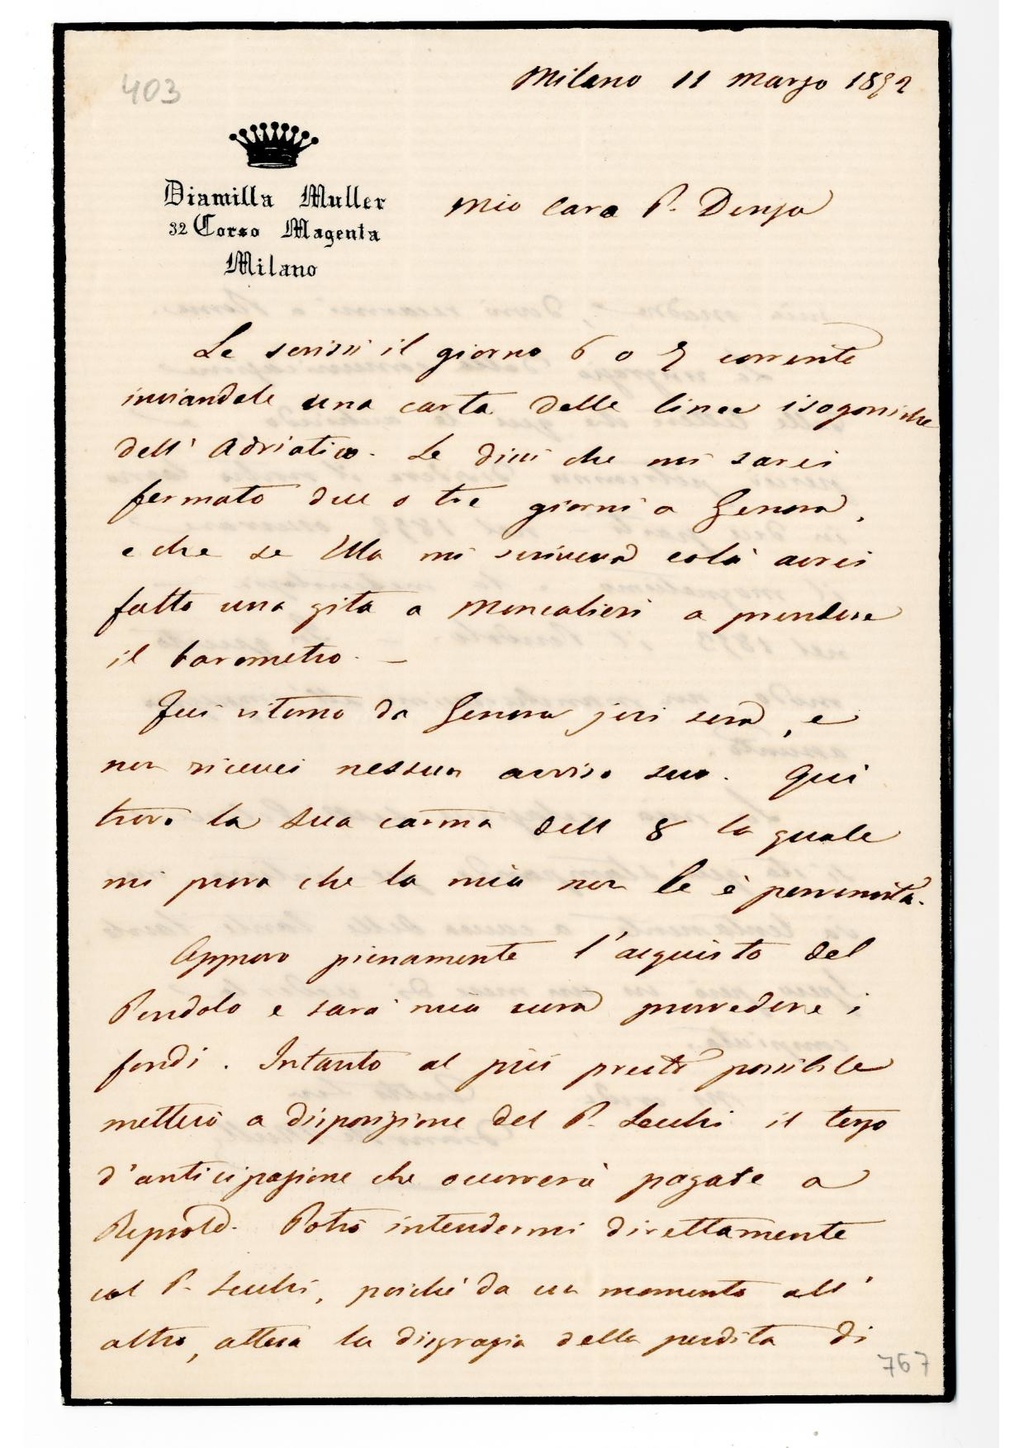 403
Milano 11 Marzo 1872
Diamilla Muller
32 Corso Magenta
Milano
Mio caro P. Denza
Le scrissi il giorno 6 o 7 corrente
inviandole una carta delle linee isogoniche
dell' Adriatico. Le dissi che mi sarei
fermato due o tre giorni a Genova,
e che se Ella mi scriveva colà avrei
fatto una gita a Moncalieri a prendere
il barometro. —
Feci ritorno da Genova jeri sera, e
non ricevei nessun avviso suo. Qui
trovo la sua carma dell 8 la quale
mi prova che la mia non le è pervenuta.
Approvo pienamente l'acquisto del
Pendolo e sarà mia cura provvedere i
fondi. Intanto al più presto possibile
metterò a disposizione del P. Secchi il terzo
d'anticipazione che occorrerà pagare a
Repsold. Potrò intendermi direttamente
col P. Secchi, poichè da un momento all'
altro, attesa la disgrazia della perdita di
767